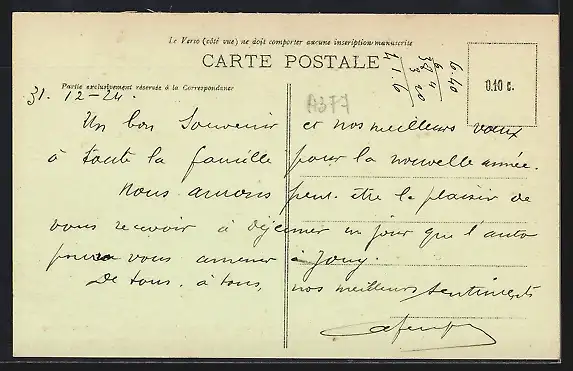 Le Verso (côté vue) ne doit comporter aucune inscription manuscrite
CARTE POSTALE
Partie exclusivement réservée à la Correspondance
0.10 c.
A377
6.40
31. 12-24.
Un bon Souvenir et nos meilleurs vœux
à toute la famille pour la nouvelle année.
Nous aurons peut-être le plaisir de
vous recevoir à déjeuner un jour que l'auto
pourra vous amener à Jouy.
De tous, à tous, nos meilleurs sentiments